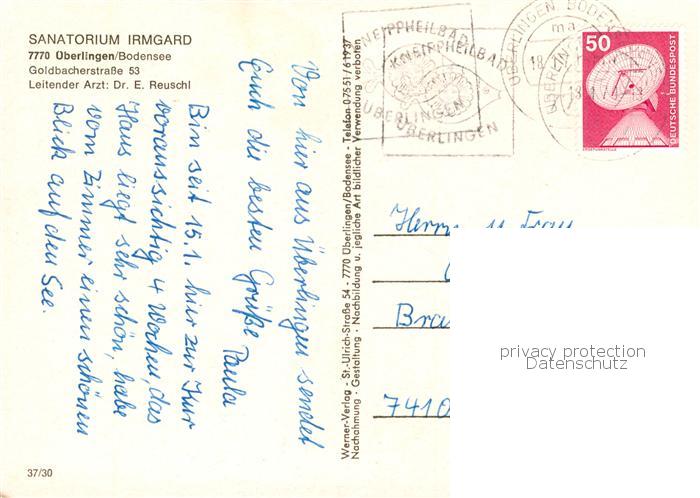 SANATORIUM IRMGARD
7770 Überlingen/Bodensee
Goldbacherstraße 53
Leitender Arzt: Dr. E. Reuschl
Von hier aus Überlingen sendet
Euch die besten Grüße Paula
Bin seit 15.1. hier zur Kur
voraussichtig 4 Wochen, das
Haus liegt sehr schön, habe
vom Zimmer einen schönen
Blick auf den See.
37/30
Werner-Verlag - St.-Ulrich-Straße 54 - 7770 Überlingen/Bodensee - Telefon 07551/61937
Nachahmung - Gestaltung - Nachbildung u. jegliche Art bildlicher Verwendung verboten
KNEIPPHEILBAD
KNEIPPHEILBAD
ÜBERLINGEN
ÜBERLINGEN
ÜBERLINGEN BODEN
ma
18
ÜBERLINGEN
18
50
DEUTSCHE BUNDESPOST
ERDEFUNKSTELLE
Herrn u. Frau
Bra
7410
privacy protection
Datenschutz